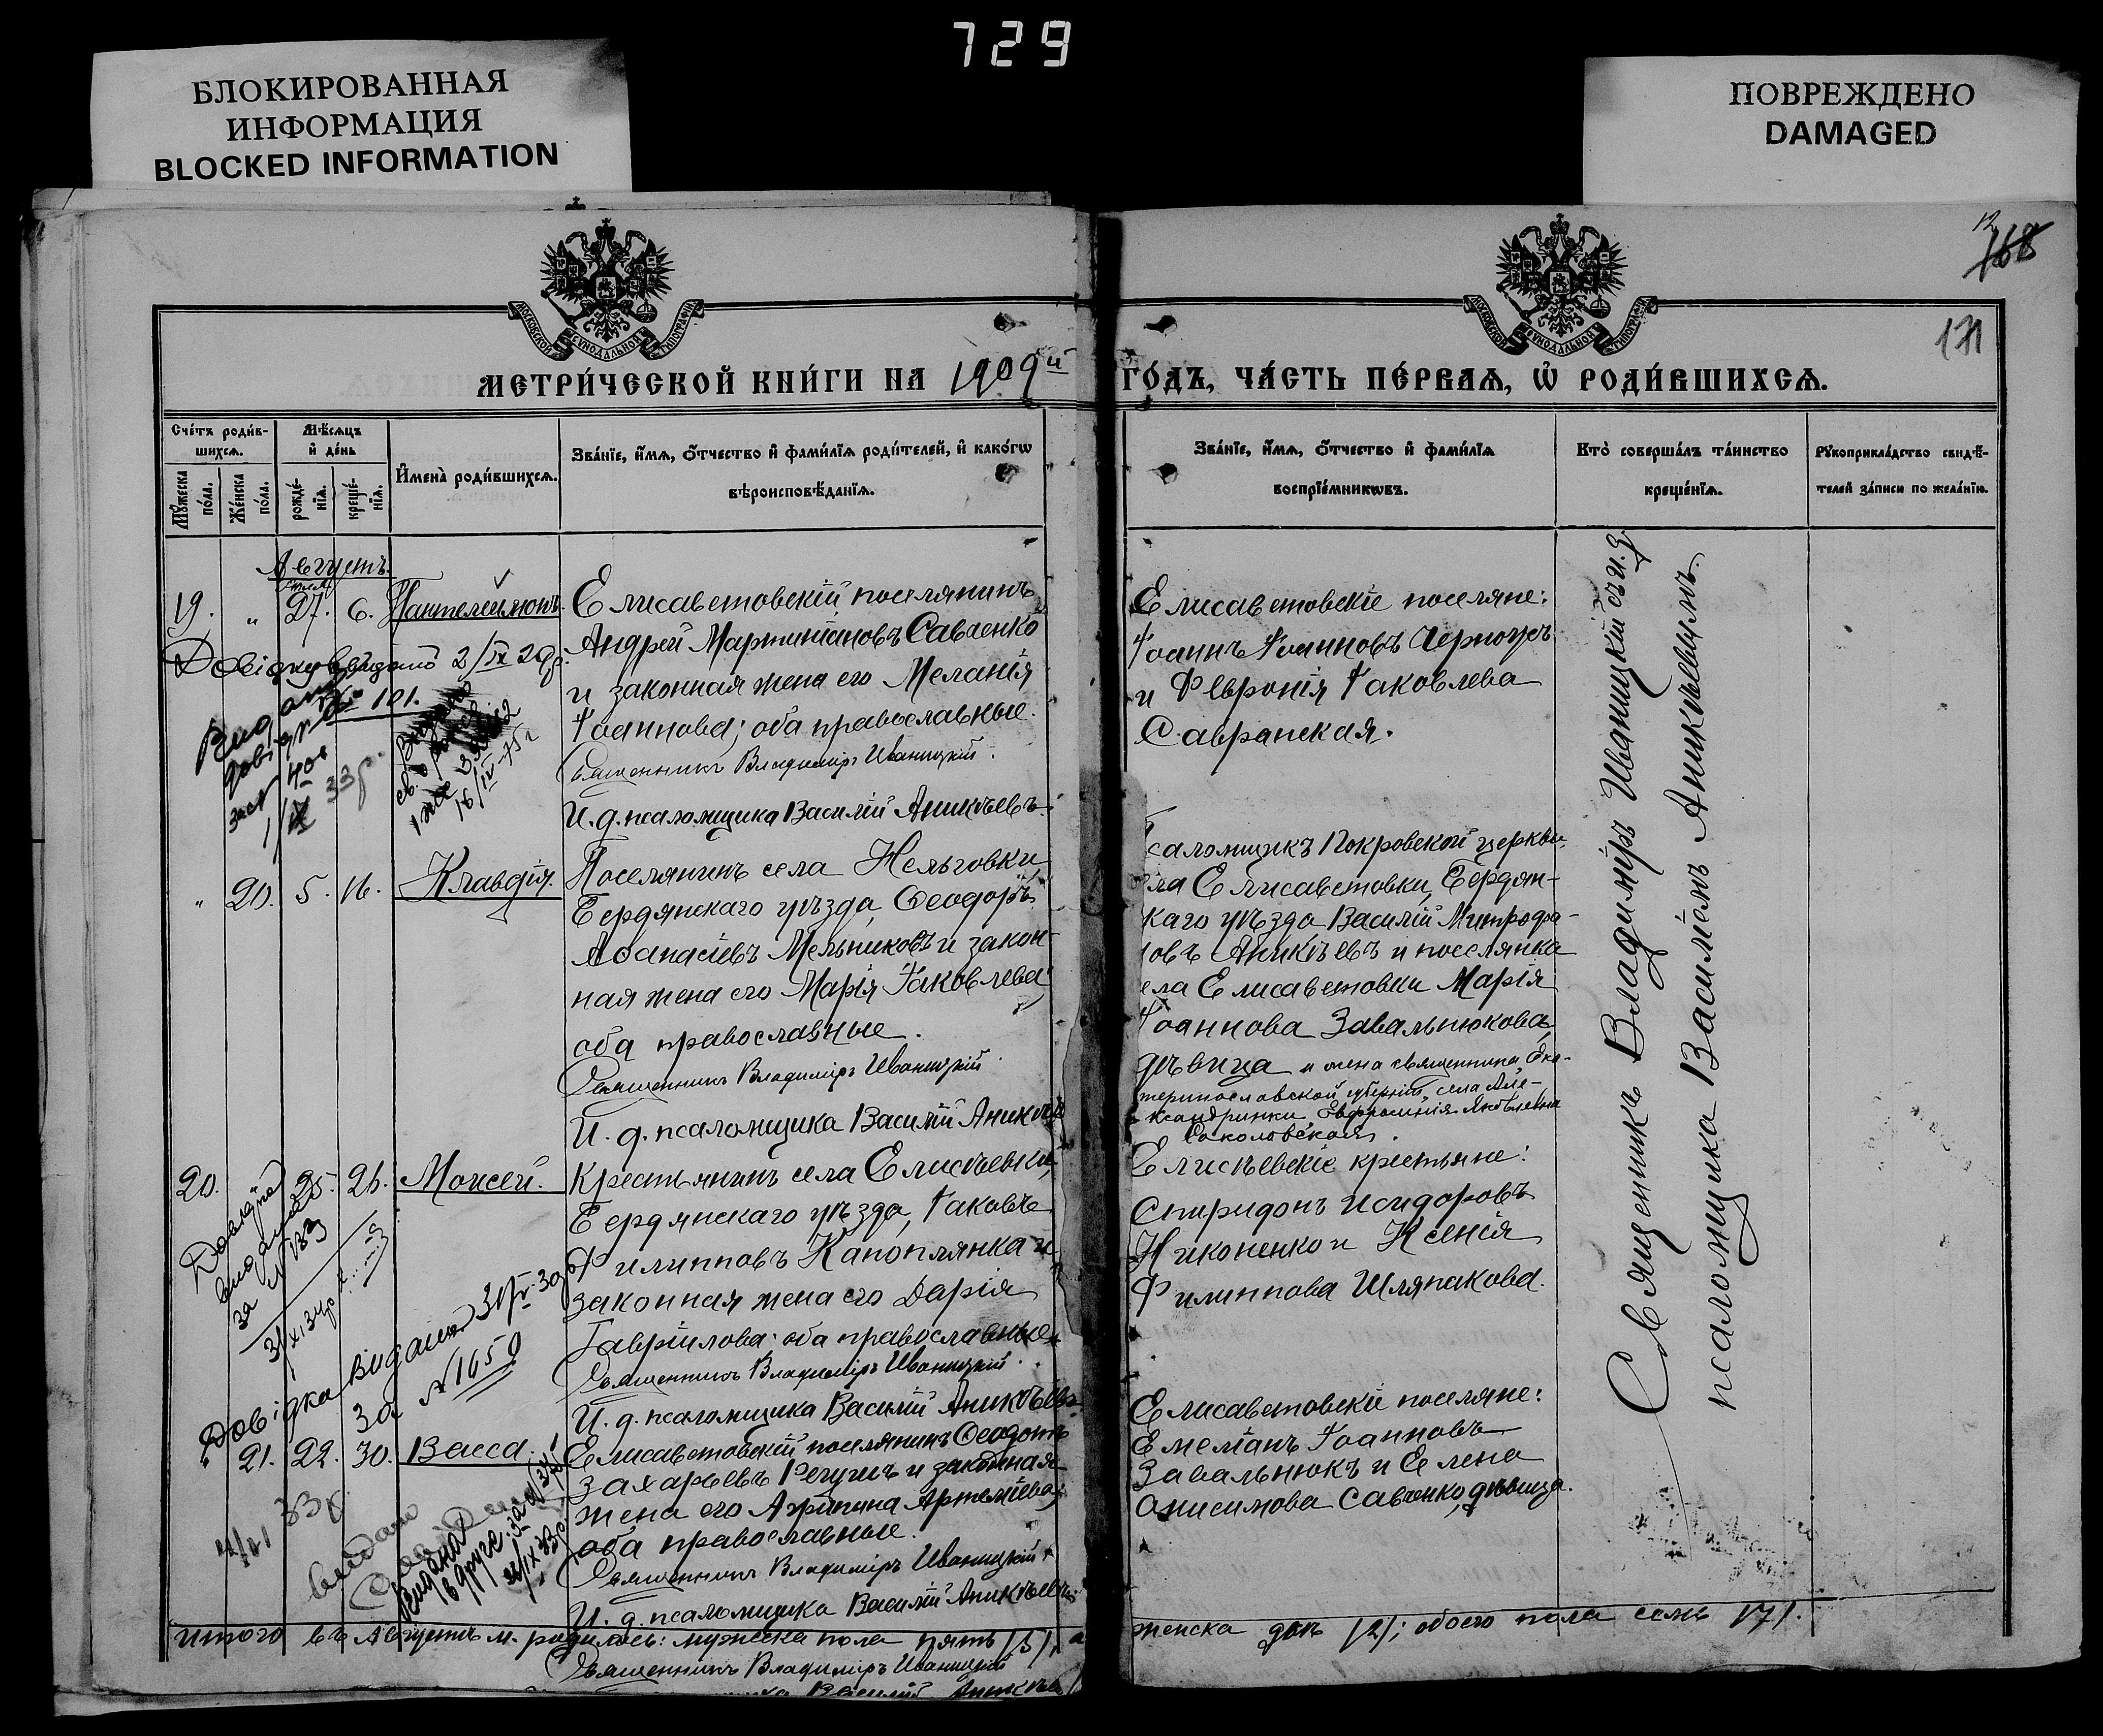 729
БЛОКИРОВАННАЯ
ИНФОРМАЦИЯ
BLOCKED INFORMATION
ПОВРЕЖДЕНО
DAMAGED
12
168
171
МОСКОВСКОЙ СѴНОДАЛЬНОЙ ТИПОГРАФІИ
МОСКОВСКОЙ СѴНОДАЛЬНОЙ ТИПОГРАФІИ
МЕТРИ́ЧЕСКОЙ КНИ́ГИ НА 1909й
ГО́ДЪ, ЧА́СТЬ ПЕ́РВАѦ, Ѡ҆ РОДИ́ВШИХСѦ.
Сче́тъ роди́в-
шихсѧ.
Мѣ́сѧцъ
и҆ де́нь
Мꙋ́жеска
по́ла.
Же́нска
по́ла.
рожде́-
нїѧ.
креще́-
нїѧ.
И҆мена̀ роди́вшихсѧ.
Зва́нїе, и҆́мѧ, ѻ҆́тчество и҆ фами́лїѧ роди́телей, и҆ како́гѡ
вѣроисповѣ́данїѧ.
Зва́нїе, и҆́мѧ, ѻ҆́тчество и҆ фами́лїѧ
воспрїе́мникѡвъ.
Кто̀ соверша́лъ та́инство
креще́нїѧ.
Рꙋкоприкла́дство свидѣ́-
телей за́писи по жела́нїю.
Августъ.
19. " 27. 6. Пантелеимонъ.
Елисаветовскій поселянинъ
Андрей Мартиніановъ Саваенко
и законная жена его Меланія
Іоаннова; оба православные.
Священникъ Владиміръ Иваницкій.
И. д. псаломщика Василій Аникѣевъ.
Елисаветовскіе поселяне:
Іоаннъ Іоанновъ Черноусъ
и Февронія Іаковлева
Савранская.
2/IX 29р.
101.
33р.
16/IV-75г
" 20. 5. 16. Клавдія.
Поселянинъ села Нельговки
Бердянскаго уѣзда, Ѳеодоръ
Аѳанасіевъ Мельниковъ и закон-
ная жена его Марія Іаковлева
оба православные.
Священникъ Владиміръ Иваницкій.
И. д. псаломщика Василій Аникѣ
саломщикъ Покровской церкви
ла Елисаветовки, Бердян-
каго уѣзда Василій Митрофа-
овъ Аникѣевъ и поселянка
ела Елисаветовки Марія
Іоаннова Завальнюкова,
дѣвица и жена священника Ека-
теринославской губерніи, села Але-
ксандринки Евфросинія Яковлевна
Соколовская.
20. " 25. 26. Моисей.
Крестьянинъ села Елисѣевки,
Бердянскаго уѣзда, Іаковъ
Филипповъ Каноплянка и
законная жена его Дарія
Гавріилова; оба православные.
Священникъ Владиміръ Иваницкій.
И. д. псаломщика Василій Аникѣевъ.
Елисѣевскіе крестьяне:
Спиридонъ Исидоровъ
Никоненко и Ксенія
Филиппова Шляпакова.
за № 183
Довідка видана
за № 1650
" 21. 22. 30. Васса.
Елисаветовскій поселянинъ Ѳеодотъ
Захарьевъ Регушъ и законная
жена его Агрипина Артеміева;
оба православные.
Священникъ Владиміръ Иваницкій.
И. д. псаломщика Василій Аникѣевъ.
Елисаветовскіе поселяне:
Емеліанъ Іоанновъ
Завальнюкъ и Елена
Анисимова Савченко, дѣвица.
33р.
видано
Видана
вдруге
Священникъ Владиміръ Иваницкій съ и. д.
псаломщика Василіемъ Аникѣевымъ.
Итого въ Августѣ м. родилось: мужеска пола пять /5/, а
женска двѣ /2/; обоего пола семь /7/.
Священникъ Владиміръ Иваницкій
Василій Аникѣевъ